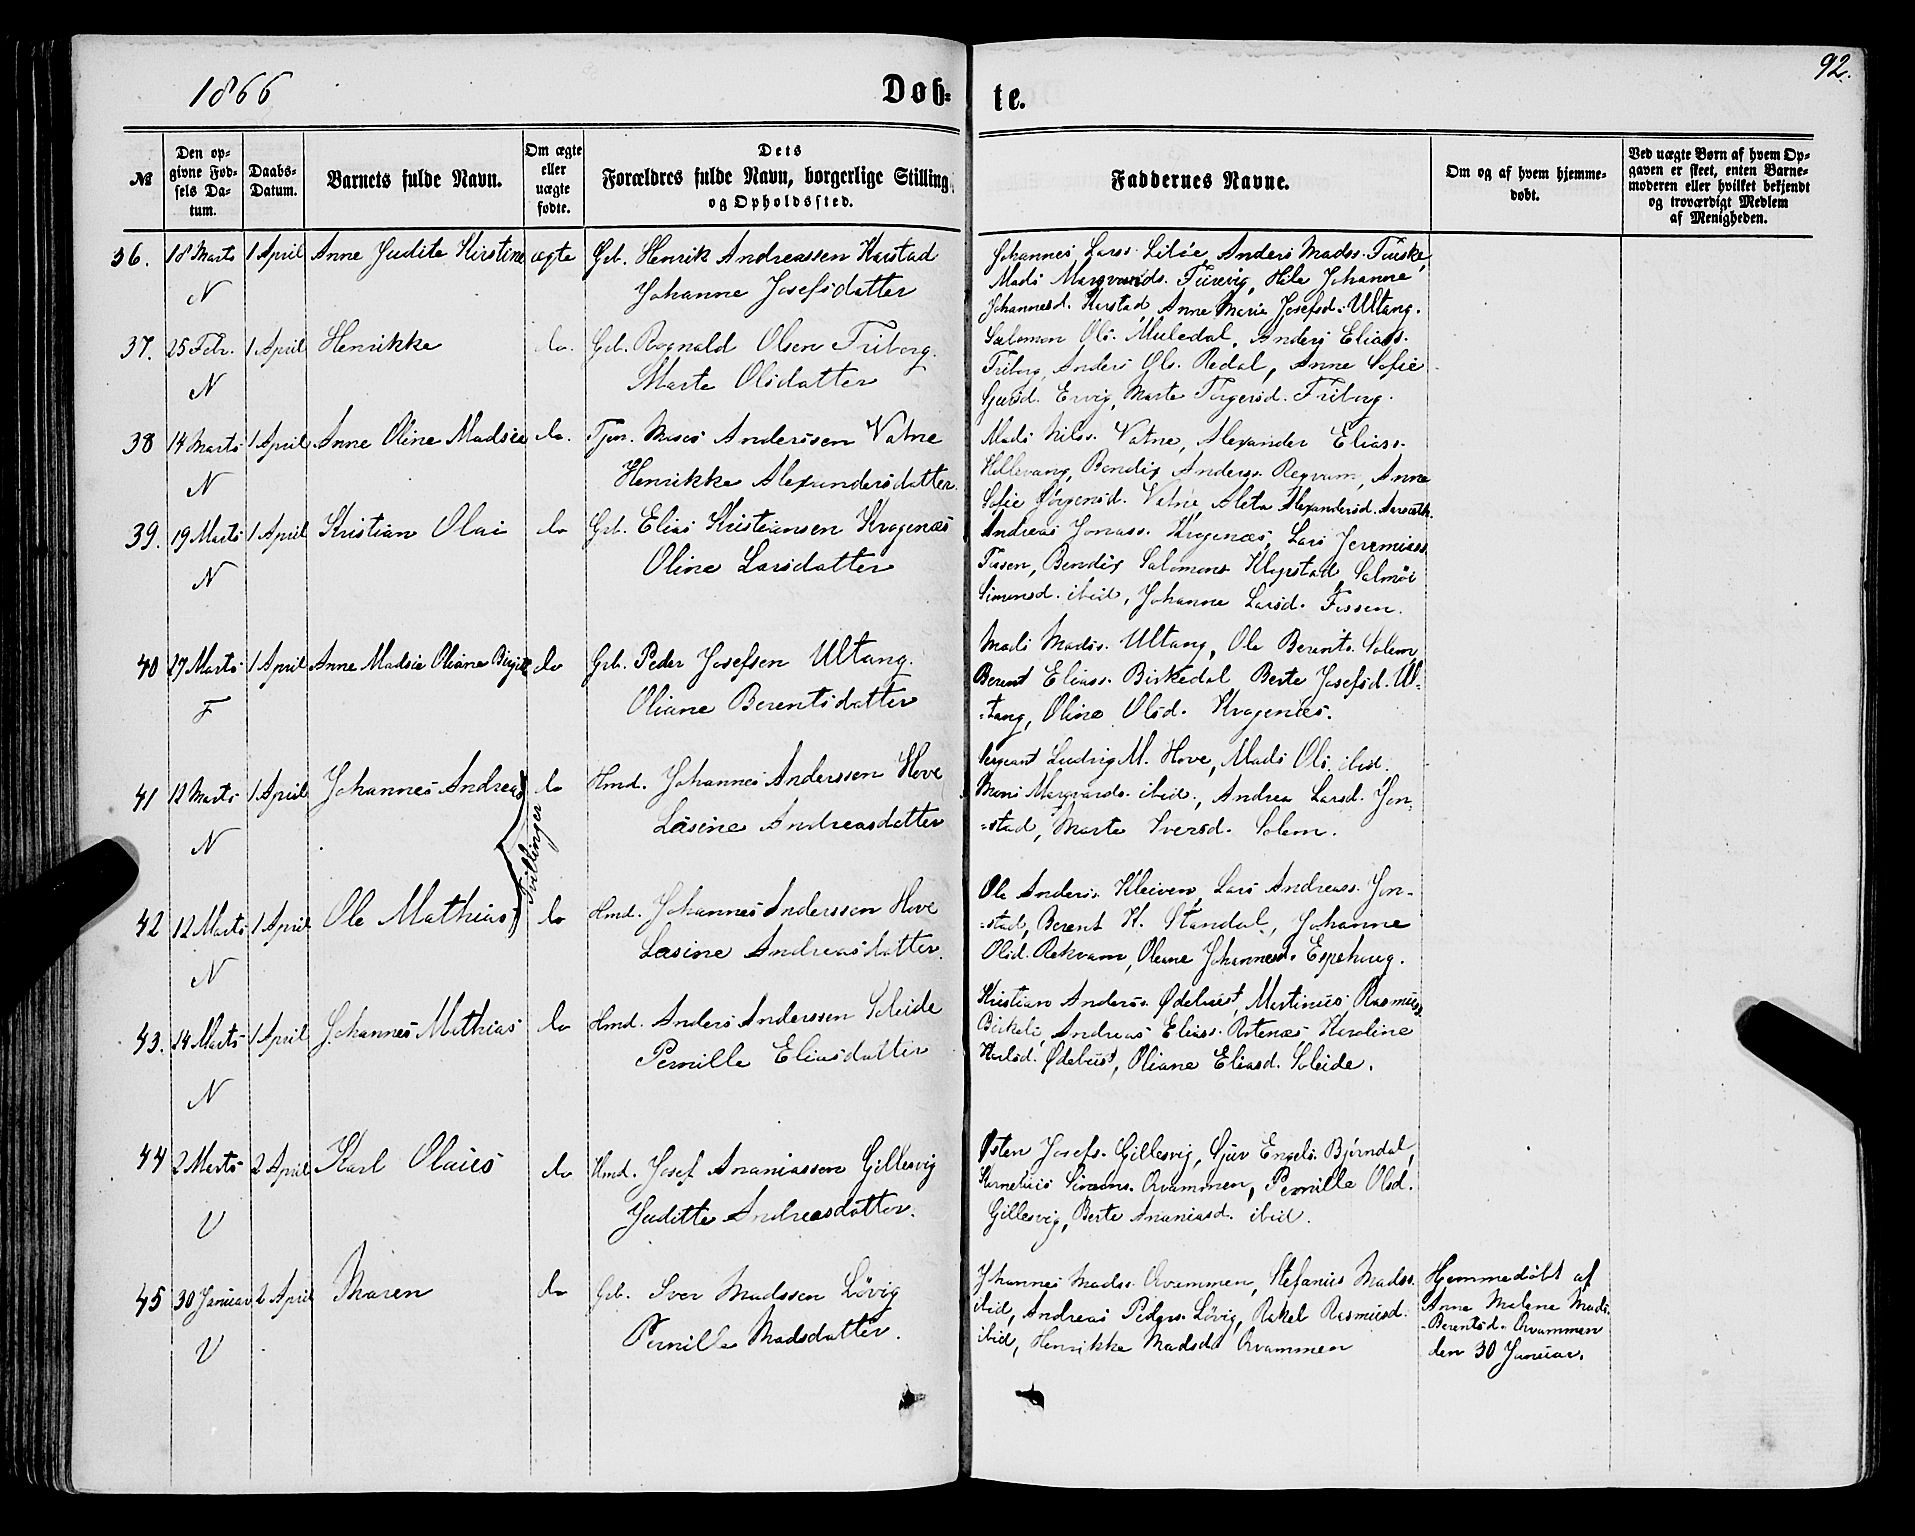 1866
Døb-
te.
92.
№
Den op-
givne Fød-
sels Da-
tum.
Daabs-
Datum.
Barnets fulde Navn.
Om ægte
eller
uægte
fødte.
Dets
Forældres fulde Navn, borgerlige Stilling
og Opholdssted.
Faddernes Navne.
Om og af hvem hjemme-
døbt.
Ved uægte Børn af hvem Op-
gaven er skeet, enten Barne-
moderen eller hvilket bekjendt
og troværdigt Medlem
af Menigheden.
36. 18 Marts 1 April Anne Judite Kirstine ægte Gb. Henrik Andreassen Karstad
N Johanne Josefsdatter
Johannes Larss. Anders Madss.
Mads Johanne
Johannesd. Karstad, Anne Marie Josefsd. Ultang.
37. 25 Febr. 1 April Henrikke do. Gb. Ragnald Olsen Friborg.
N Marte Olsdatter
Salomon Ols. Muledal, Anders Eliass.
Friborg, Anders Ols. Redal, Anne Sofie
Ervig, Marte Torgersd. Friborg.
38 14 Marts 1 April Anne Oline Madsie do. Tjen. Moses Anderssen Vatne
N Henrikke Alexandersdatter.
Mads Nilss. Vatne, Alexander Eliass.
Hellevang, Bendix Anderss. Reqvam, Anne
Sofie Jørgensd. Vatne, Aleta Alexandersd.
39. 19 Marts 1 April Kristian Olai do Gb. Elias Kristiansen Kragenæs
N Oline Larsdatter
Andreas Jonass. Kragenæs, Lars Jeremiass.
Fossen, Bendix Salomons Klopstad, Salmøe
Simonsd. ibid, Johanne Larsd. Fossen.
40 27 Marts 1 April Anne Madsie Oliane Birgitte do Gb. Peder Josefsen Ultang.
F Oliane Berentsdatter
Mads Madss. Ultang, Ole Berents. Solem,
Berent Eliass. Birkedal, Berte Josefsd. Ul-
-tang, Oline Olsd. Kragenæs.
41 12 Marts 1 April Johannes Andreas do Hmd. Johannes Anderssen Hove
N Lasine Andreasdatter
Sergeant Ludvig M. Hove, Mads Ols. ibid.
Mons Marqvards. ibid., Andrea Larsd. Jon-
-stad, Marte Iversd. Solem.
Tvillinger
42 12 Marts 1 April Ole Mathias do Hmd. Johannes Anderssen Hove
N Lasine Andreasdatter.
Ole Anderss. Kleiven, Lars Andreass. Jon-
-stad, Berent K. Standal, Johanne
Olsd. Rekvam, Oleane Johannesd. Espehaug.
43. 14 Marts 1 April Johannes Mathias do Hmd. Anders Anderssen Soleide
N Pernille Eliasdatter
Kristian Anderss. Ødebust, Martinus Rasmuss.
Birkeli, Andreas Eliass. Rotenæs, Karoline
Karlsd. Ødebust, Oliane Eliasd. Soleide.
44 2 Marts 2 April Karl Olaus do Hmd. Josef Ananiassen Gillesvig
U Juditte Andreasdatter.
Østen Josefs. Gillesvig, Sjur Engels. Bjørndal,
Kornelius Simons. Qvammen, Pernille Olsd.
Gillesvig, Berte Ananiasd. ibid.
45 30 Januar 2 April Maren do Gb. Iver Madssen Løvig
U Pernille Madsdatter.
Johannes Madss. Qvammen, Stefanus Madss.
ibid, Andreas Peders. Løvig, Rakel Rasmusd.
ibid, Henrikke Madsd. Qvammen
Hjemmedøbt af
Anne Malene Mads-
-Berentsd. Qvammen
den 30 Januar.